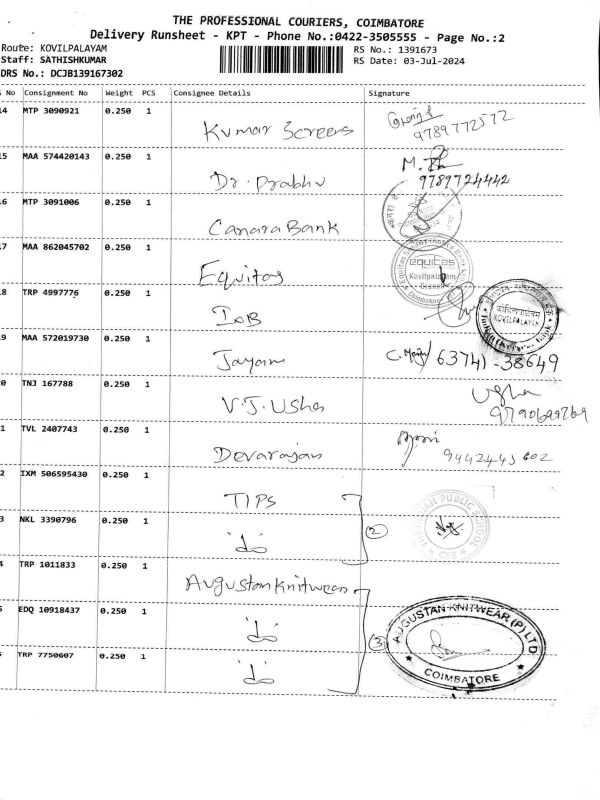 THE PROFESSIONAL COURIERS, COIMBATORE
Delivery Runsheet - KPT - Phone No.:0422-3505555 - Page No.:2
Route: KOVILPALAYAM
Staff: SATHISHKUMAR
DRS No.: DCJB139167302
RS No.: 1391673
RS Date: 03-Jul-2024
No Consignment No Weight PCS Consignee Details Signature
14 MTP 3090921 0.250 1 Kumar Screens 9789772572
15 MAA 574420143 0.250 1 Dr. Prabhu 9789724442
16 MTP 3091006 0.250 1 Canara Bank
17 MAA 862045702 0.250 1 Equitas equitas Kovilpalayam Branch
8 TRP 4997776 0.250 1 IOB KOVILPALAYAM
9 MAA 572019730 0.250 1 Jayam 63741-38649
0 TNJ 167788 0.250 1 V.J. Usha Usha 9790699769
1 TVL 2407743 0.250 1 Devarajan 9442445602
2 IXM 506595430 0.250 1 TIPS PUBLIC SCHOOL CBE
3 NKL 3390796 0.250 1 2
4 TRP 1011833 0.250 1 Augustan Knitwear
5 EDQ 10918437 0.250 1 3 AUGUSTAN KNITWEAR (P) LTD COIMBATORE
TRP 7750607 0.250 1